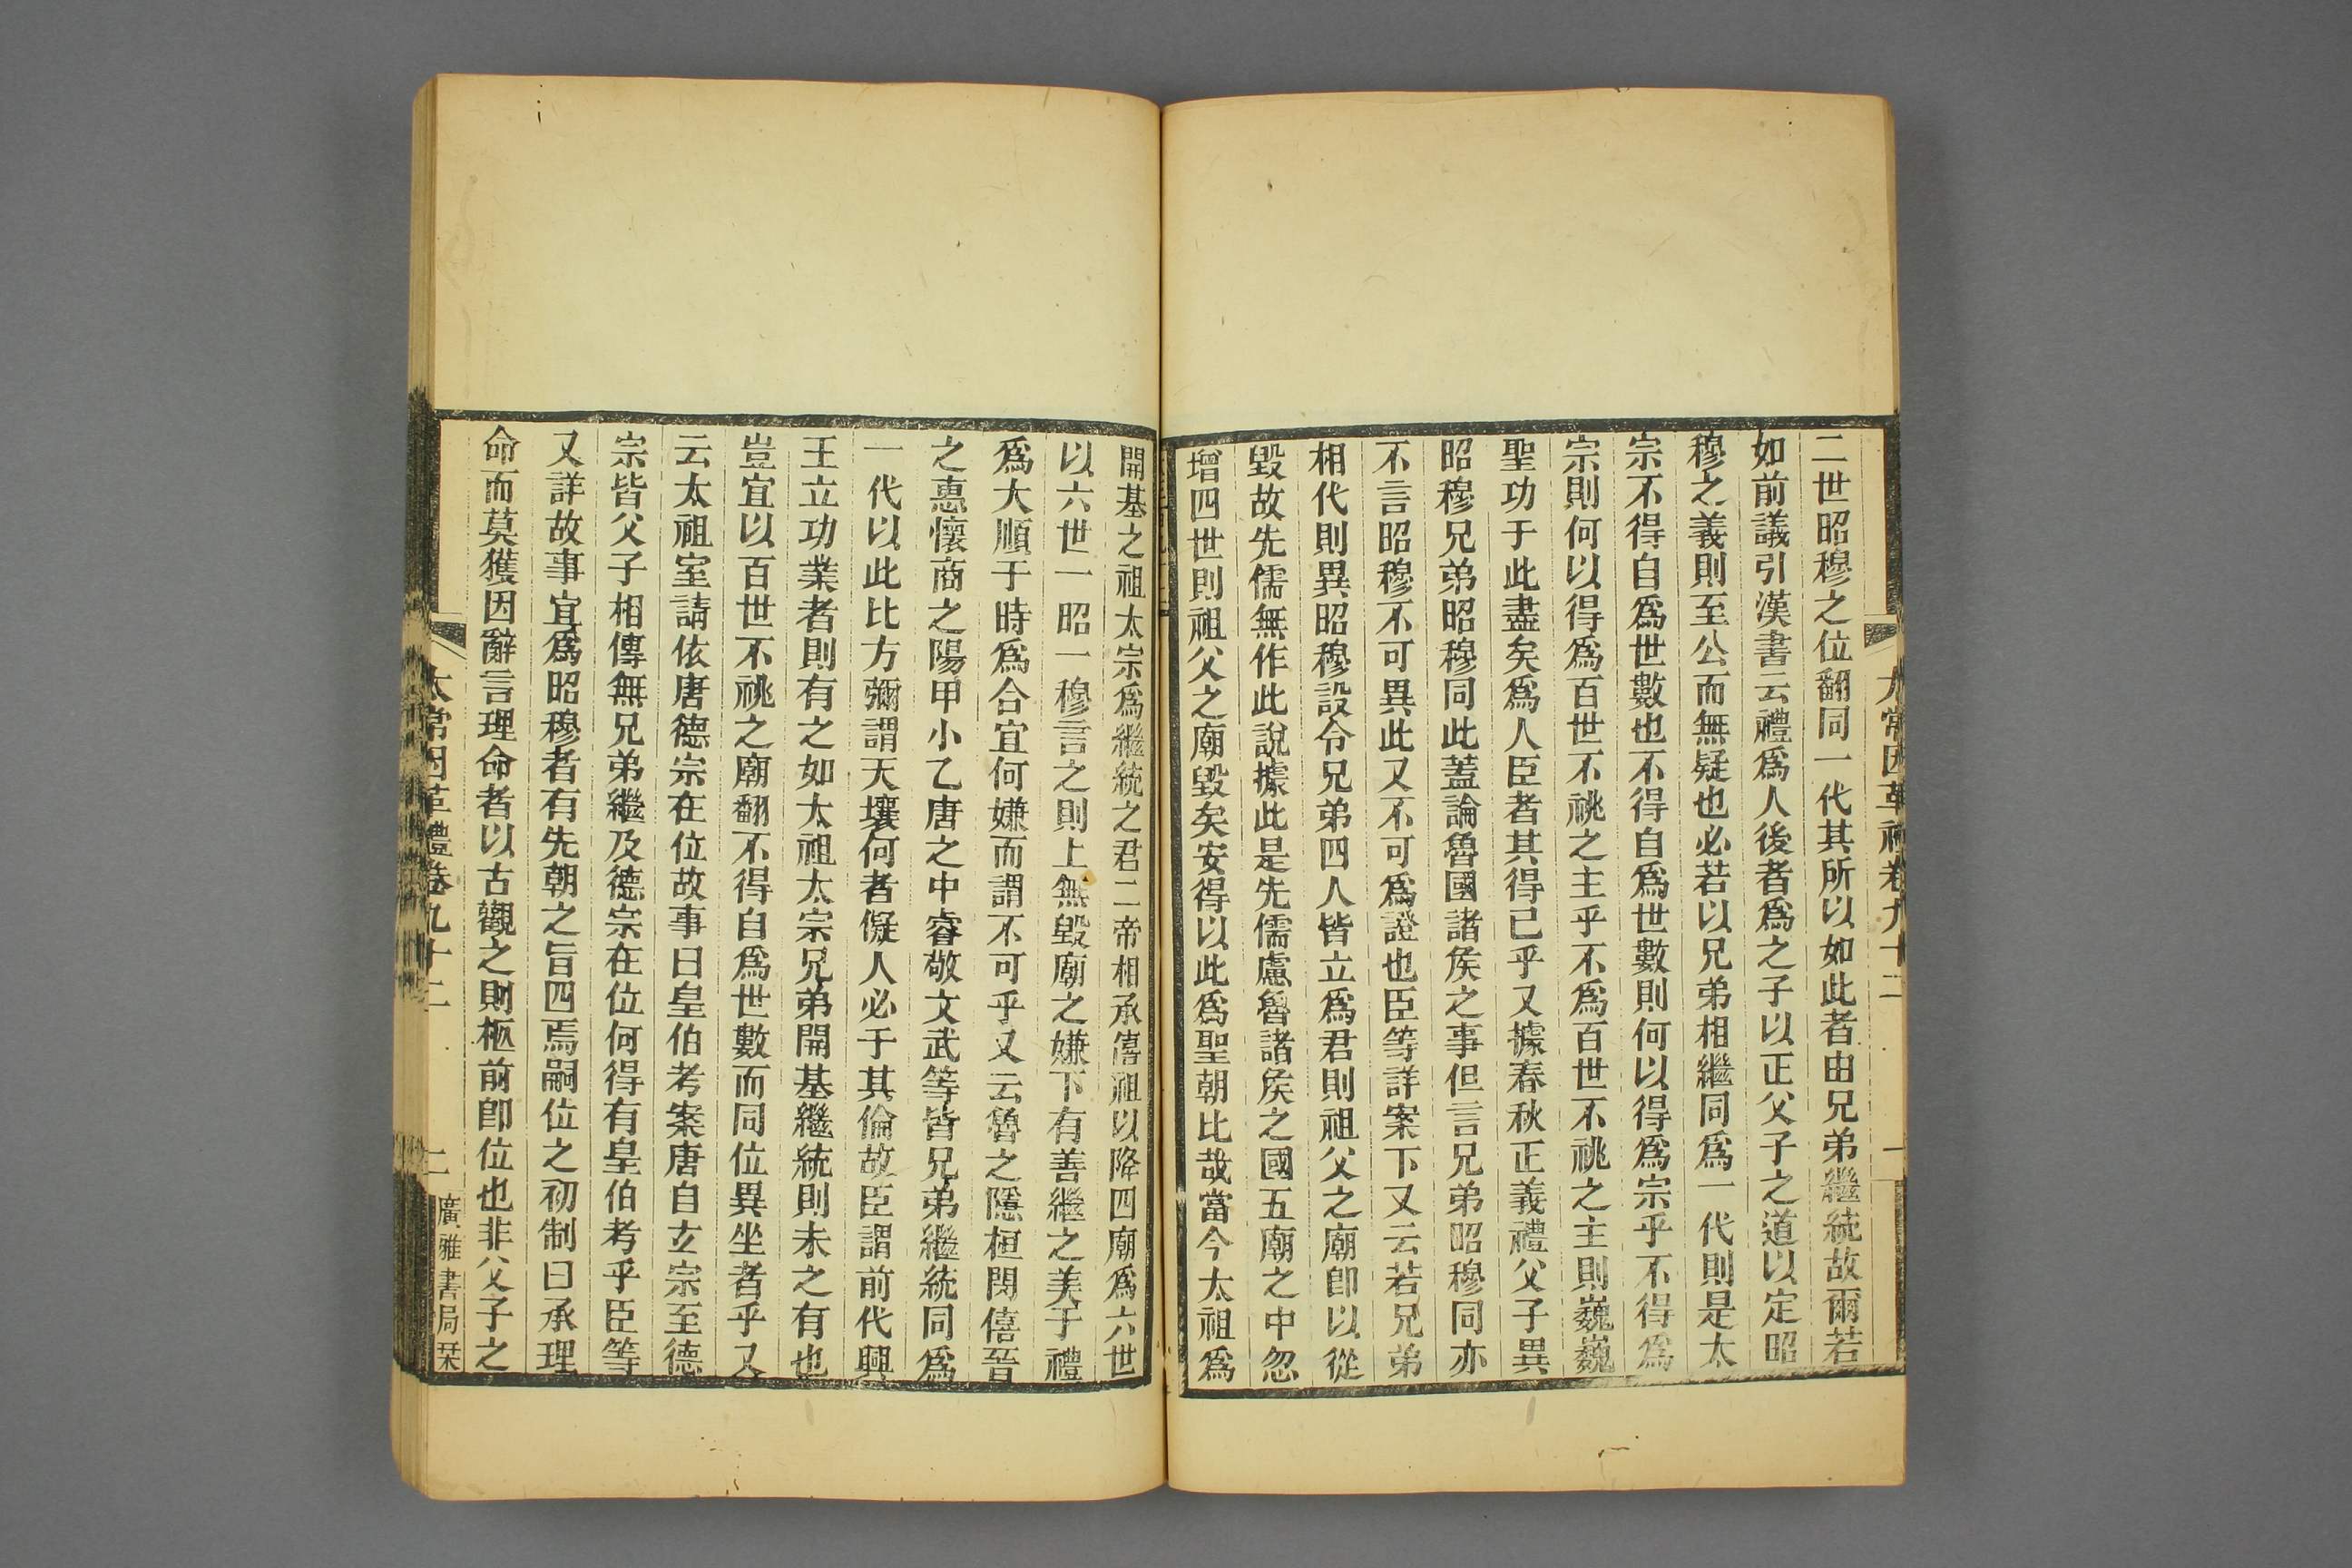 太常因革禮卷九十二
一
二世昭穆之位翻同一代其所以如此者由兄弟繼統故爾若
如前議引漢書云禮爲人後者爲之子以正父子之道以定昭
穆之義則至公而無疑也必若以兄弟相繼同爲一代則是太
宗不得自爲世數也不得自爲世數則何以得爲宗乎不得爲
宗則何以得爲百世不祧之主乎不爲百世不祧之主則巍巍
聖功于此盡矣爲人臣者其得已乎又據春秋正義禮父子異
昭穆兄弟昭穆同此蓋論魯國諸侯之事但言兄弟昭穆同亦
不言昭穆不可異此又不可爲證也臣等詳案下又云若兄弟
相代則異昭穆設令兄弟四人皆立爲君則祖父之廟卽以從
毀故先儒無作此說據此是先儒慮魯諸侯之國五廟之中忽
增四世則祖父之廟毀矣安得以此爲聖朝比哉當今太祖爲
開基之祖太宗爲繼統之君二帝相承僖祖以降四廟爲六世
以六世一昭一穆言之則上無毀廟之嫌下有善繼之美于禮
爲大順于時爲合宜何嫌而謂不可乎又云魯之隱桓閔僖晉
之惠懷商之陽甲小乙唐之中睿敬文武等皆兄弟繼統同爲
一代以此比方彌謂天壤何者儗人必于其倫故臣謂前代興
王立功業者則有之如太祖太宗兄弟開基繼統則未之有也
豈宜以百世不祧之廟翻不得自爲世數而同位異坐者乎又
云太祖室請依唐德宗在位故事曰皇伯考案唐自玄宗至德
宗皆父子相傳無兄弟繼及德宗在位何得有皇伯考乎臣等
又詳故事宜爲昭穆者有先朝之旨四焉嗣位之初制曰承理
命而莫獲因辭言理命者以古觀之則柩前卽位也非父子之
太常因革禮卷九十二
二
廣雅書局栞